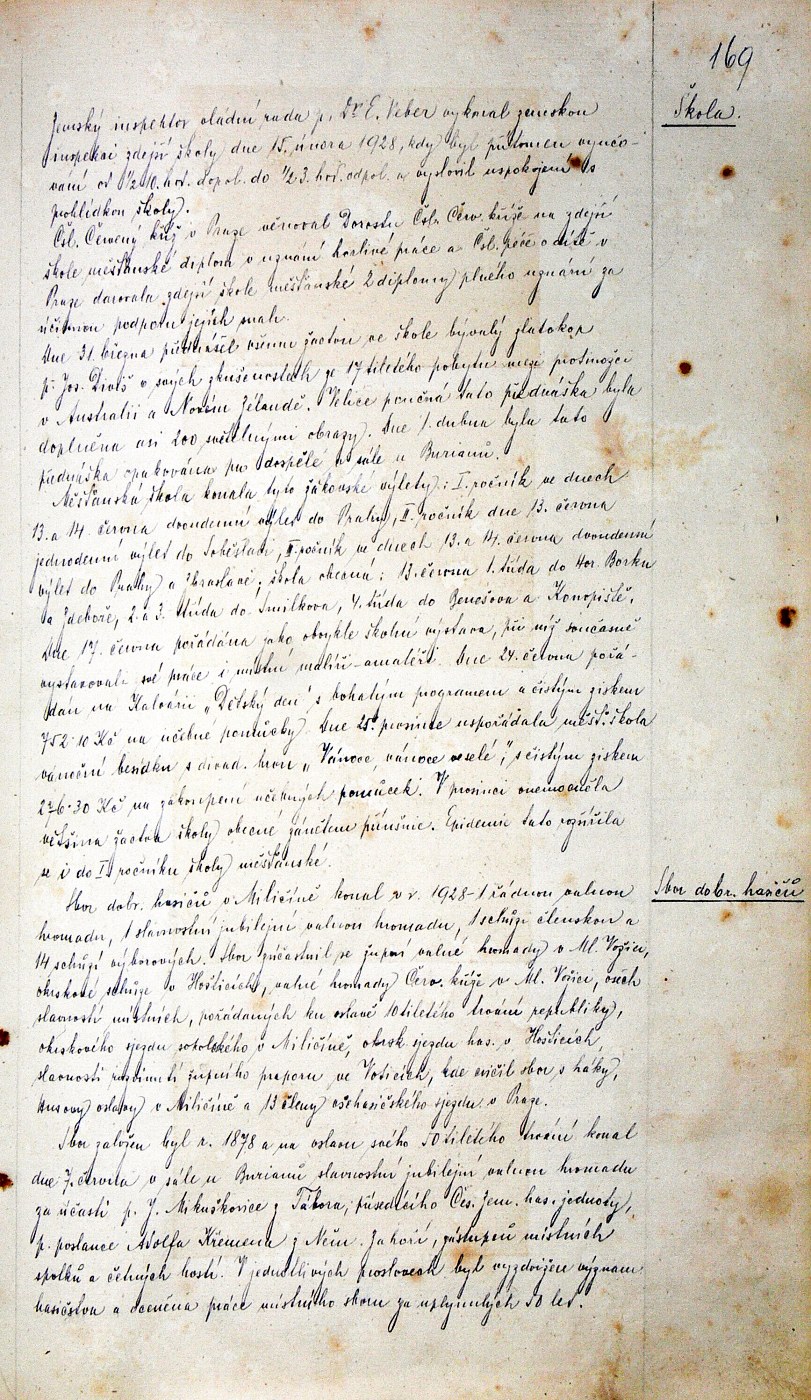 169
Škola.
Zemský inspektor vládní rada p. Dr. E. Veber vykonal zemskou
inspekci zdejší školy dne 15. února 1928, kdy byl přítomen vyučo-
vání od ½ 10. hod. dopol. do ½ 3. hod. odpol. a vyslovil uspokojení s
prohlídkou školy.
Čsl. Červený kříž v Praze věnoval Dorostu Čsl. Červ. kříže na zdejší
škole měšťanské diplom v uznání horlivé práce a Čsl. péče o dítě v
Praze darovala zdejší škole měšťanské 2 diplomy plného uznání za
účinnou podporu jejich snah.
Dne 31. března přednášel všemu žactvu ve škole bývalý zlatokop
p. Jos. Diviš o svých zkušenostech ze 17tiletého pobytu mezi protinožci
v Australii a Novém Zélandě. Velice poučná tato přednáška byla
doplněna asi 200 světelnými obrazy. Dne 1. dubna byla tato
přednáška opakována pro dospělé v sále u Burianů.
Měšťanská škola konala tyto žákovské výlety: I. ročník ve dnech
13. a 14. června dvoudenní výlet do Prahy, II. ročník dne 13. června
jednodenní výlet do Soběslavi, III. ročník ve dnech 13. a 14. června dvoudenní
výlet do Prahy a Zbraslavě; škola obecná: 13. června 1. třída do Hor. Borku
a Zdeboře, 2. a 3. třída do Smilkova, 4. třída do Benešova a Konopiště.
Dne 17. června pořádána jako obvykle školní výstava, při níž současně
vystavovali své práce i místní malíři-amatéři. Dne 24. června pořá-
dán na Kalvárii „Dětský den“ s bohatým programem a čistým ziskem
752·10 Kč na učebné pomůcky. Dne 25. prosince uspořádala měšť. škola
vánoční besídku s divad. hrou „Vánoce, vánoce veselé“, s čistým ziskem
276·30 Kč na zakoupení učebných pomůcek. V prosinci onemocněla
většina žactva školy obecné zánětem příušnic. Epidemie tato rozšířila
se i do I. ročníku školy měšťanské.
Sbor dobr. hasičů
Sbor dobr. hasičů v Miličíně konal v r. 1928 - 1 řádnou valnou
hromadu, 1 slavnostní jubilejní valnou hromadu, 1 schůzi členskou a
14 schůzí výborových. Sbor zúčastnil se župní valné hromady v Ml. Vožici,
okrskové schůze v Hošticích, valné hromady Červ. kříže v Ml. Vožici, všech
slavností místních, pořádaných ku oslavě 10tiletého trvání republiky,
okrskového sjezdu sokolského v Miličíně, okrsk. sjezdu has. v Hošticích,
slavnosti rozvinutí župního praporu ve Voticích, kde cvičil sbor s háky,
Husovy oslavy v Miličíně a 13 členy všehasičského sjezdu v Praze.
Sbor založen byl r. 1878 a na oslavu svého 50tiletého trvání konal
dne 7. června v sále u Burianů slavnostní jubilejní valnou hromadu
za účasti p. J. Mikuškovice z Tábora, přísedícího Čes. zem. has. jednoty,
p. poslance Adolfa Křemena z Něm. Záhoří, zástupců místních
spolků a četných hostí. V jednotlivých proslovech byl vyzdvižen význam
hasičstva a oceněna práce místního sboru za uplynulých 50 let.